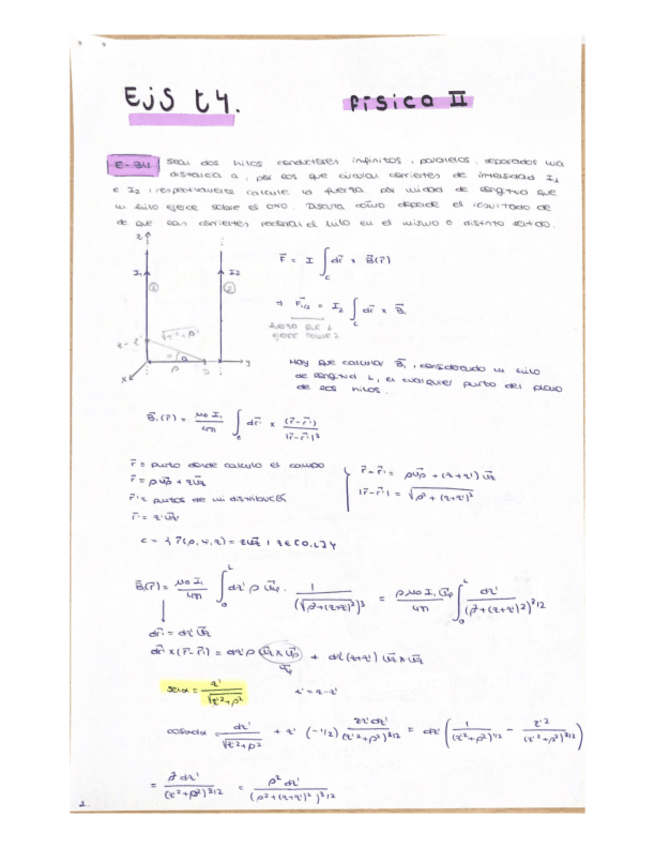 Ejs t4. Física II
E-34 Sean dos hilos conductores infinitos, paralelos, separados una
distancia a, por los que circulan corrientes de intensidad I₁
e I₂, respectivamente. Calcule la fuerza por unidad de longitud que
un hilo ejerce sobre el otro. Discuta cómo depende el resultado de
de que las corrientes recorran el hilo en el mismo o distinto sentido.
z
I₁ I₂
① ②
z-z'
α
ρ
x y
F⃗ = I ∫c dr⃗ × B⃗(r⃗)
⇒ F⃗₁/₂ = I₂ ∫c dr⃗ × B⃗₁
fuerza que 1
ejerce sobre 2
Hay que calcular B⃗₁, considerando un hilo
de longitud L, en cualquier punto del plano
de los hilos.
B⃗₁(r⃗) = μ₀ I₁/4π ∫c dr⃗' × (r⃗-r⃗')/|r⃗-r⃗'|³
r⃗ = punto donde calculo el campo
r⃗ = ρu⃗ρ + zu⃗z
r⃗' = puntos de mi distribución
r⃗' = z'u⃗z
r⃗-r⃗' = ρu⃗ρ + (z+z')u⃗z
|r⃗-r⃗'| = √ρ²+(z+z')²
c = { r⃗(ρ,φ,z) = zu⃗z, z∈[0,L] }
B⃗₁(r⃗) = μ₀ I₁/4π ∫₀ᴸ dz' ρ u⃗φ · 1/(√ρ²+(z+z')²)³ = ρμ₀ I₁ u⃗φ/4π ∫₀ᴸ dz'/(ρ²+(z+z')²)^3/2
dr⃗' = dz' u⃗z
dr⃗' × (r⃗-r⃗') = dz'ρ (u⃗z × u⃗ρ) + dz'(z+z') u⃗z × u⃗z
u⃗φ
senα = z'/√z'²+ρ² z' = z-z'
cosαdα = dz'/√z'²+ρ² + z' (-1/2) 2z'dz'/(z'²+ρ²)^3/2 = dz' (1/(z'²+ρ²)^1/2 - z'²/(z'²+ρ²)^3/2)
= ρ²dz'/(z'²+ρ²)^3/2 = ρ²dz'/(ρ²+(z+z')²)^3/2
2.